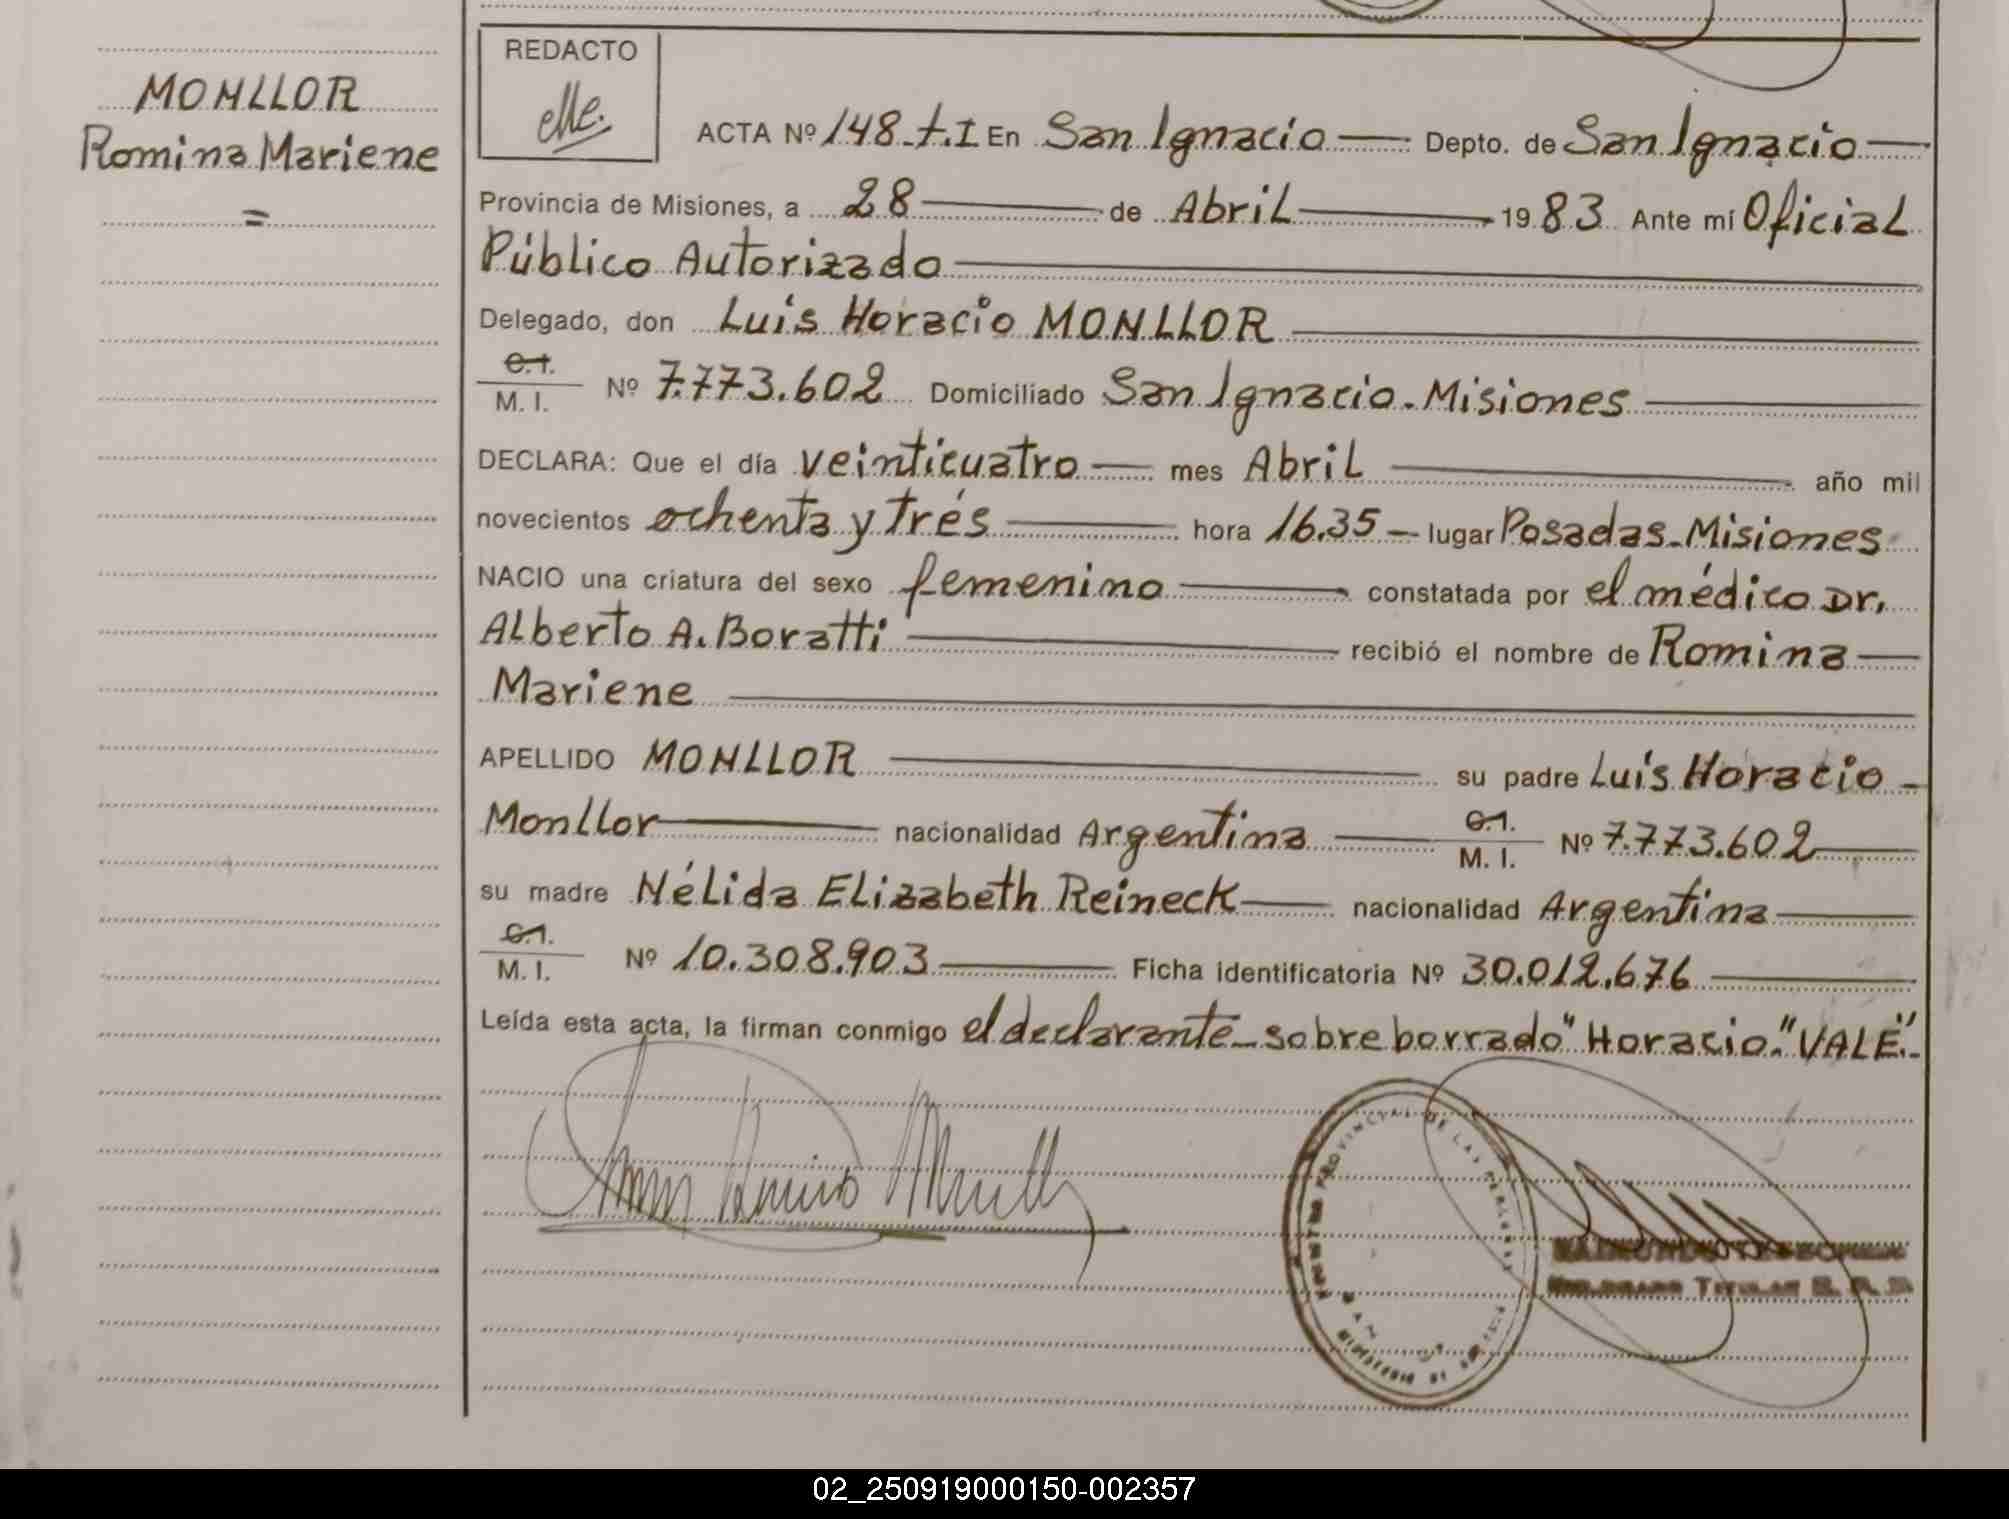 MONLLOR
Romina Mariene
=
REDACTO
ACTA Nº 148-t.I En San Ignacio Depto. de San Ignacio
Provincia de Misiones, a 28 de Abril 1983 Ante mí Oficial
Público Autorizado
Delegado, don Luis Horacio MONLLOR
C.I.
M. I. Nº 7.773.602 Domiciliado San Ignacio-Misiones
DECLARA: Que el día veinticuatro mes Abril año mil
novecientos ochenta y trés hora 16.35 lugar Posadas-Misiones
NACIO una criatura del sexo femenino constatada por el médico Dr.
Alberto A. Boratti recibió el nombre de Romina
Mariene
APELLIDO MONLLOR su padre Luis Horacio
Monllor nacionalidad Argentina C.I. M. I. Nº 7.773.602
su madre Nélida Elizabeth Reineck nacionalidad Argentina
C.I.
M. I. Nº 10.308.903 Ficha identificatoria Nº 30.012.676
Leída esta acta, la firman conmigo el declarante-sobre borrado "Horacio." "VALE".-
PROVINCIAL DE LAS PERSONAS
TITULAR
02_250919000150-002357